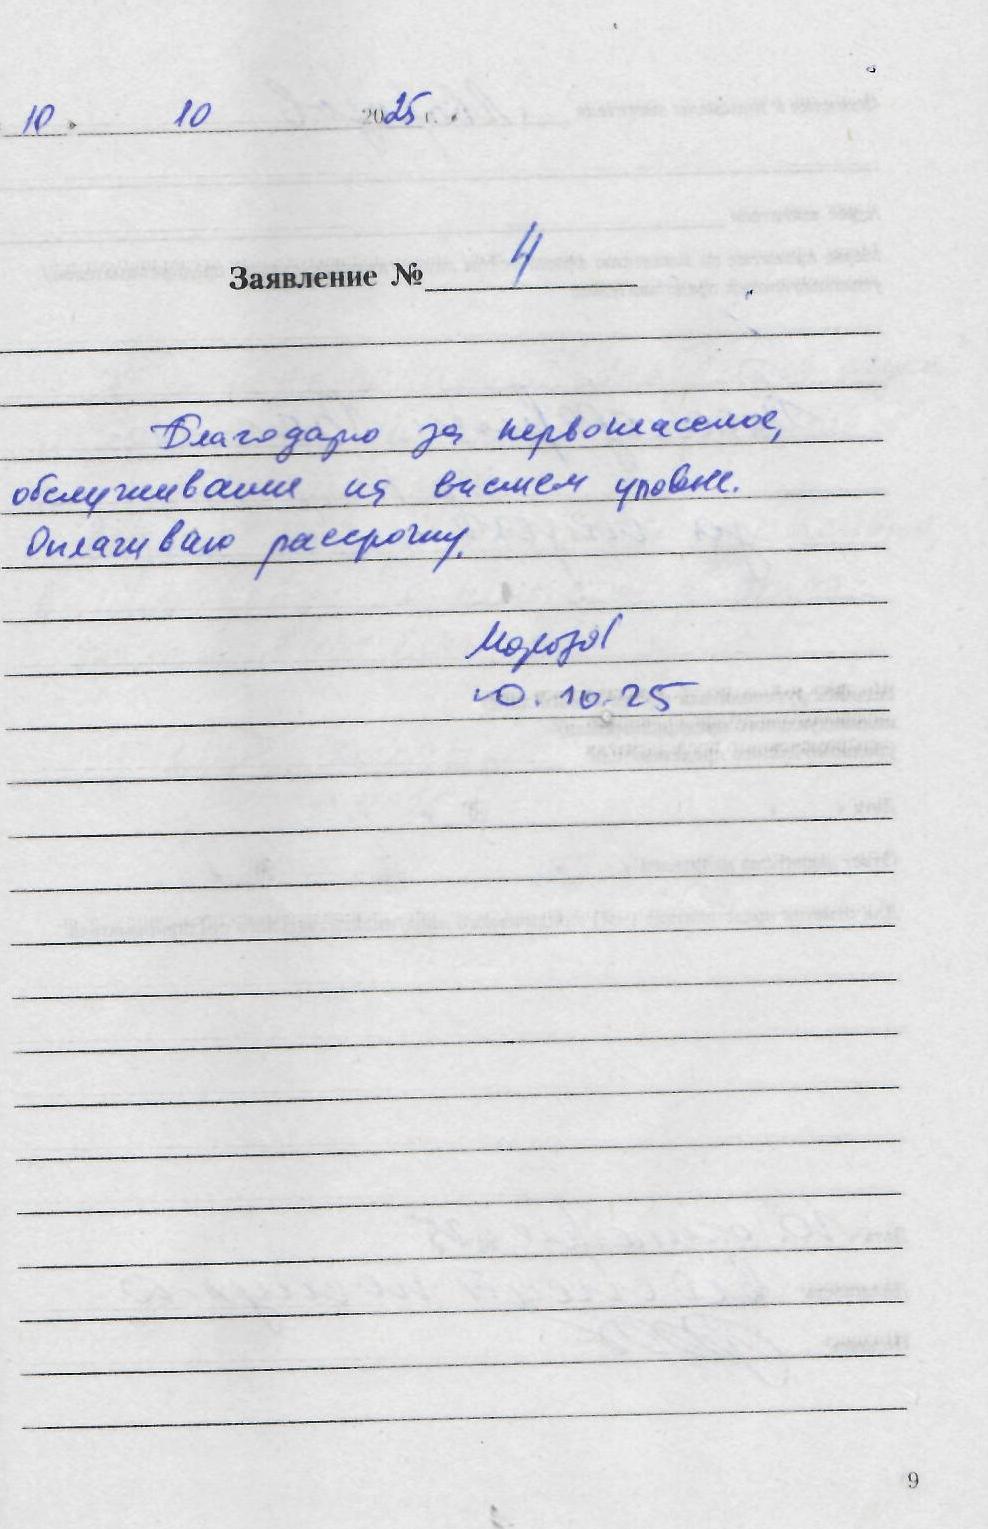 10 » 10 2025 г.
Заявление № 4
Благодарю за первоклассное,
обслуживание на висшем уровне.
Оплачиваю рассрочку.
Морозов
10.10.25
9